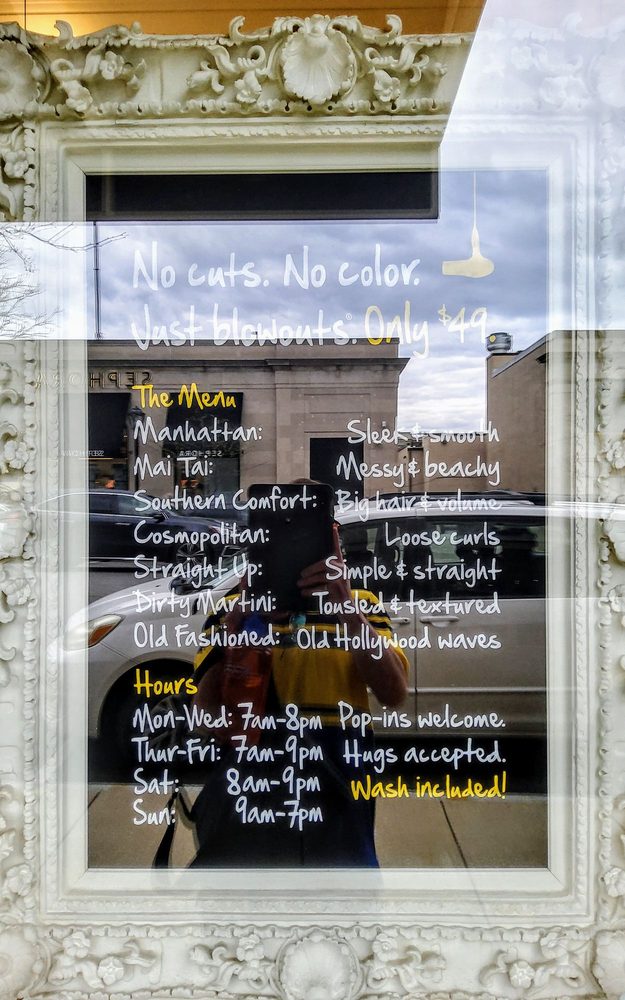 No cuts. No color.
Just blowouts.® Only $49
SEPHORA
The Menu
Manhattan: Sleek & smooth
Mai Tai: Messy & beachy
SEPHORA
Southern Comfort: Big hair & volume
Cosmopolitan: Loose curls
Straight Up: Simple & straight
Dirty Martini: Tousled & textured
Old Fashioned: Old Hollywood waves
Hours
Mon-Wed: 7am-8pm Pop-ins welcome.
Thur-Fri: 7am-9pm Hugs accepted.
Sat: 8am-9pm Wash included!
Sun: 9am-7pm